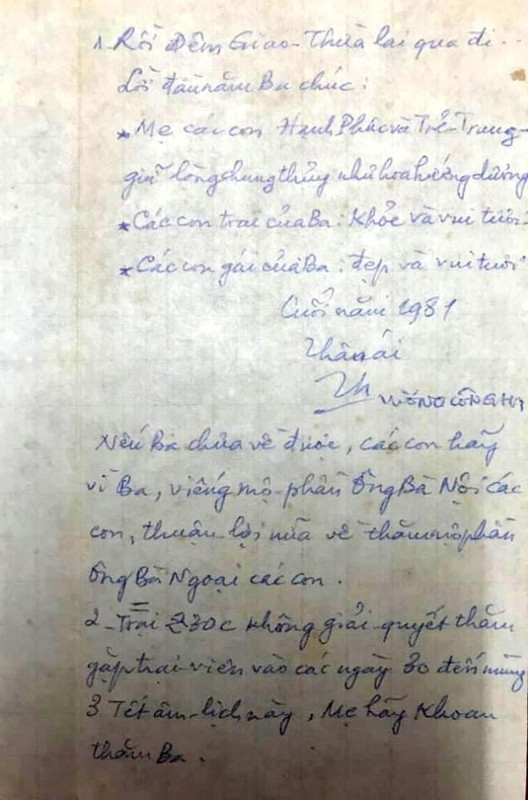 1. Rồi Đêm Giao-Thừa lại qua đi...
Lời đầu năm Ba chúc:
* Mẹ các con Hạnh Phúc và Trẻ-Trung-
giữ lòng chung thủy như hoa hướng dương
* Các con trai của Ba: Khỏe và vui tươi-
* Các con gái của Ba: đẹp và vui tươi
Cuối năm 1981
Thân ái
Th VƯƠNG CÔNG
Nếu Ba chưa về được, các con hãy
vì Ba, viếng mộ-phần Ông Bà Nội các
con, thuận lợi nữa về thăm mộ phần
Ông Bà Ngoại các con.
2- Trại Z30C không giải quyết thăm
gặp trại viên vào các ngày 30 đến mùng
3 Tết âm-lịch này, Mẹ hãy Khoan
thăm Ba.